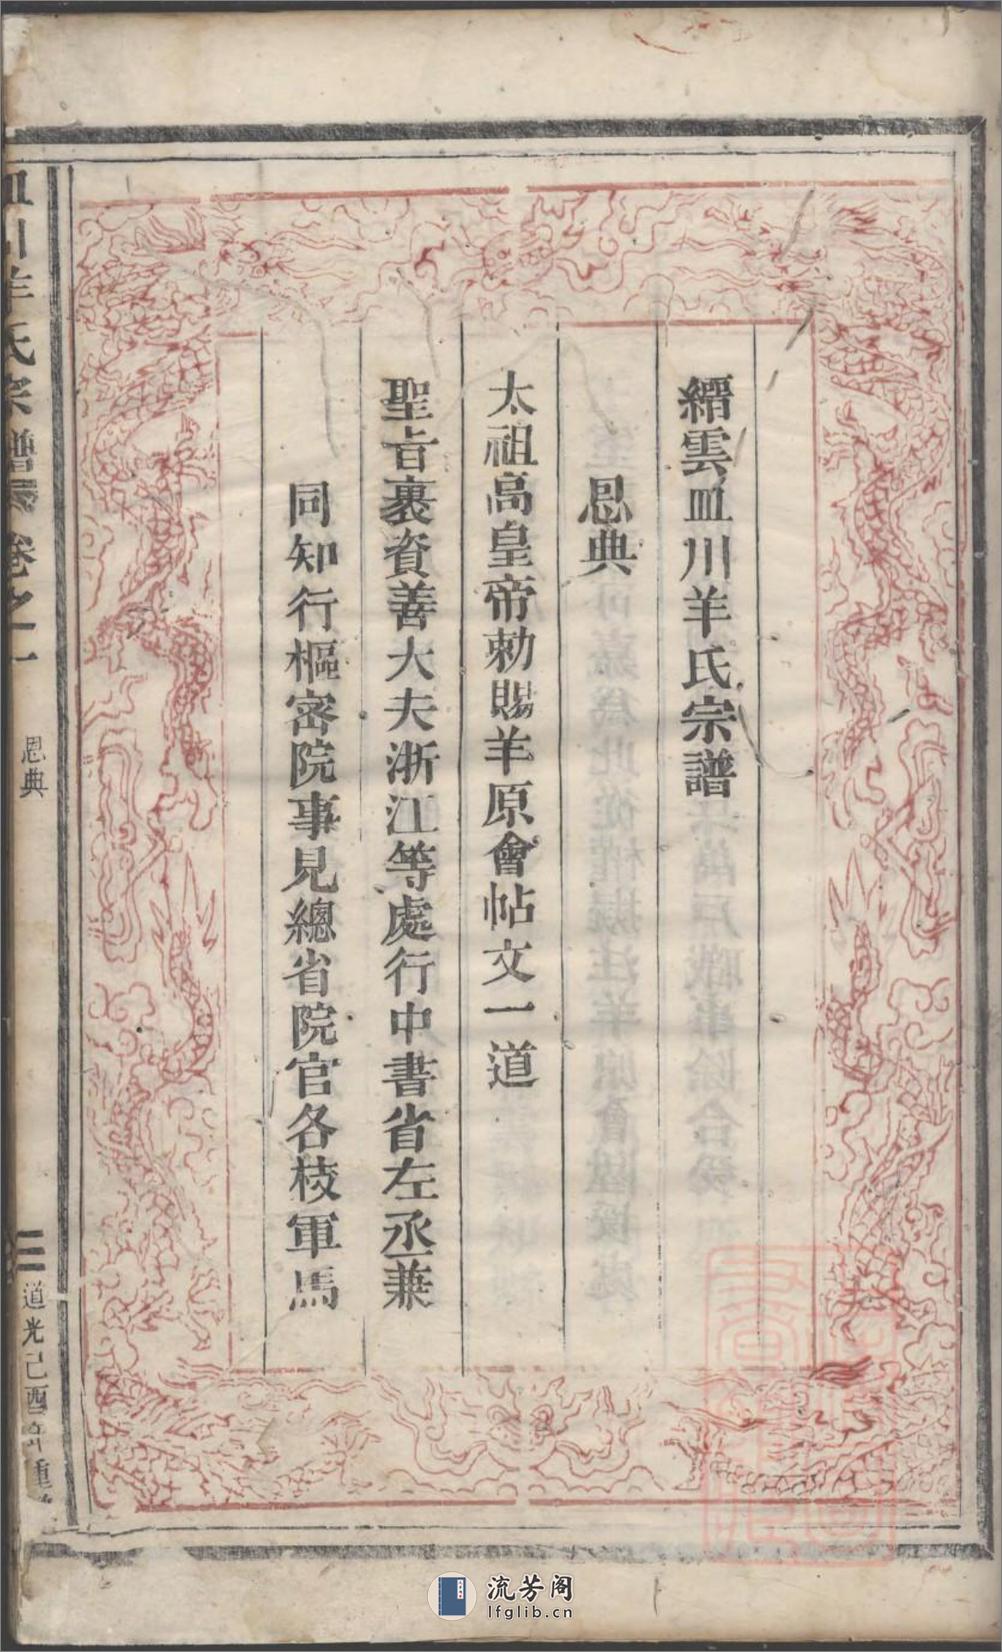 縉雲皿川羊氏宗譜
恩典
太祖高皇帝勅賜羊原會帖文一道
聖旨裹資善大夫浙江等處行中書省左丞兼
同知行樞密院事見總省院官各枝軍馬
皿川羊氏宗譜 卷之一 恩典 二 道光己酉年重
流芳阁
lfglib.cn